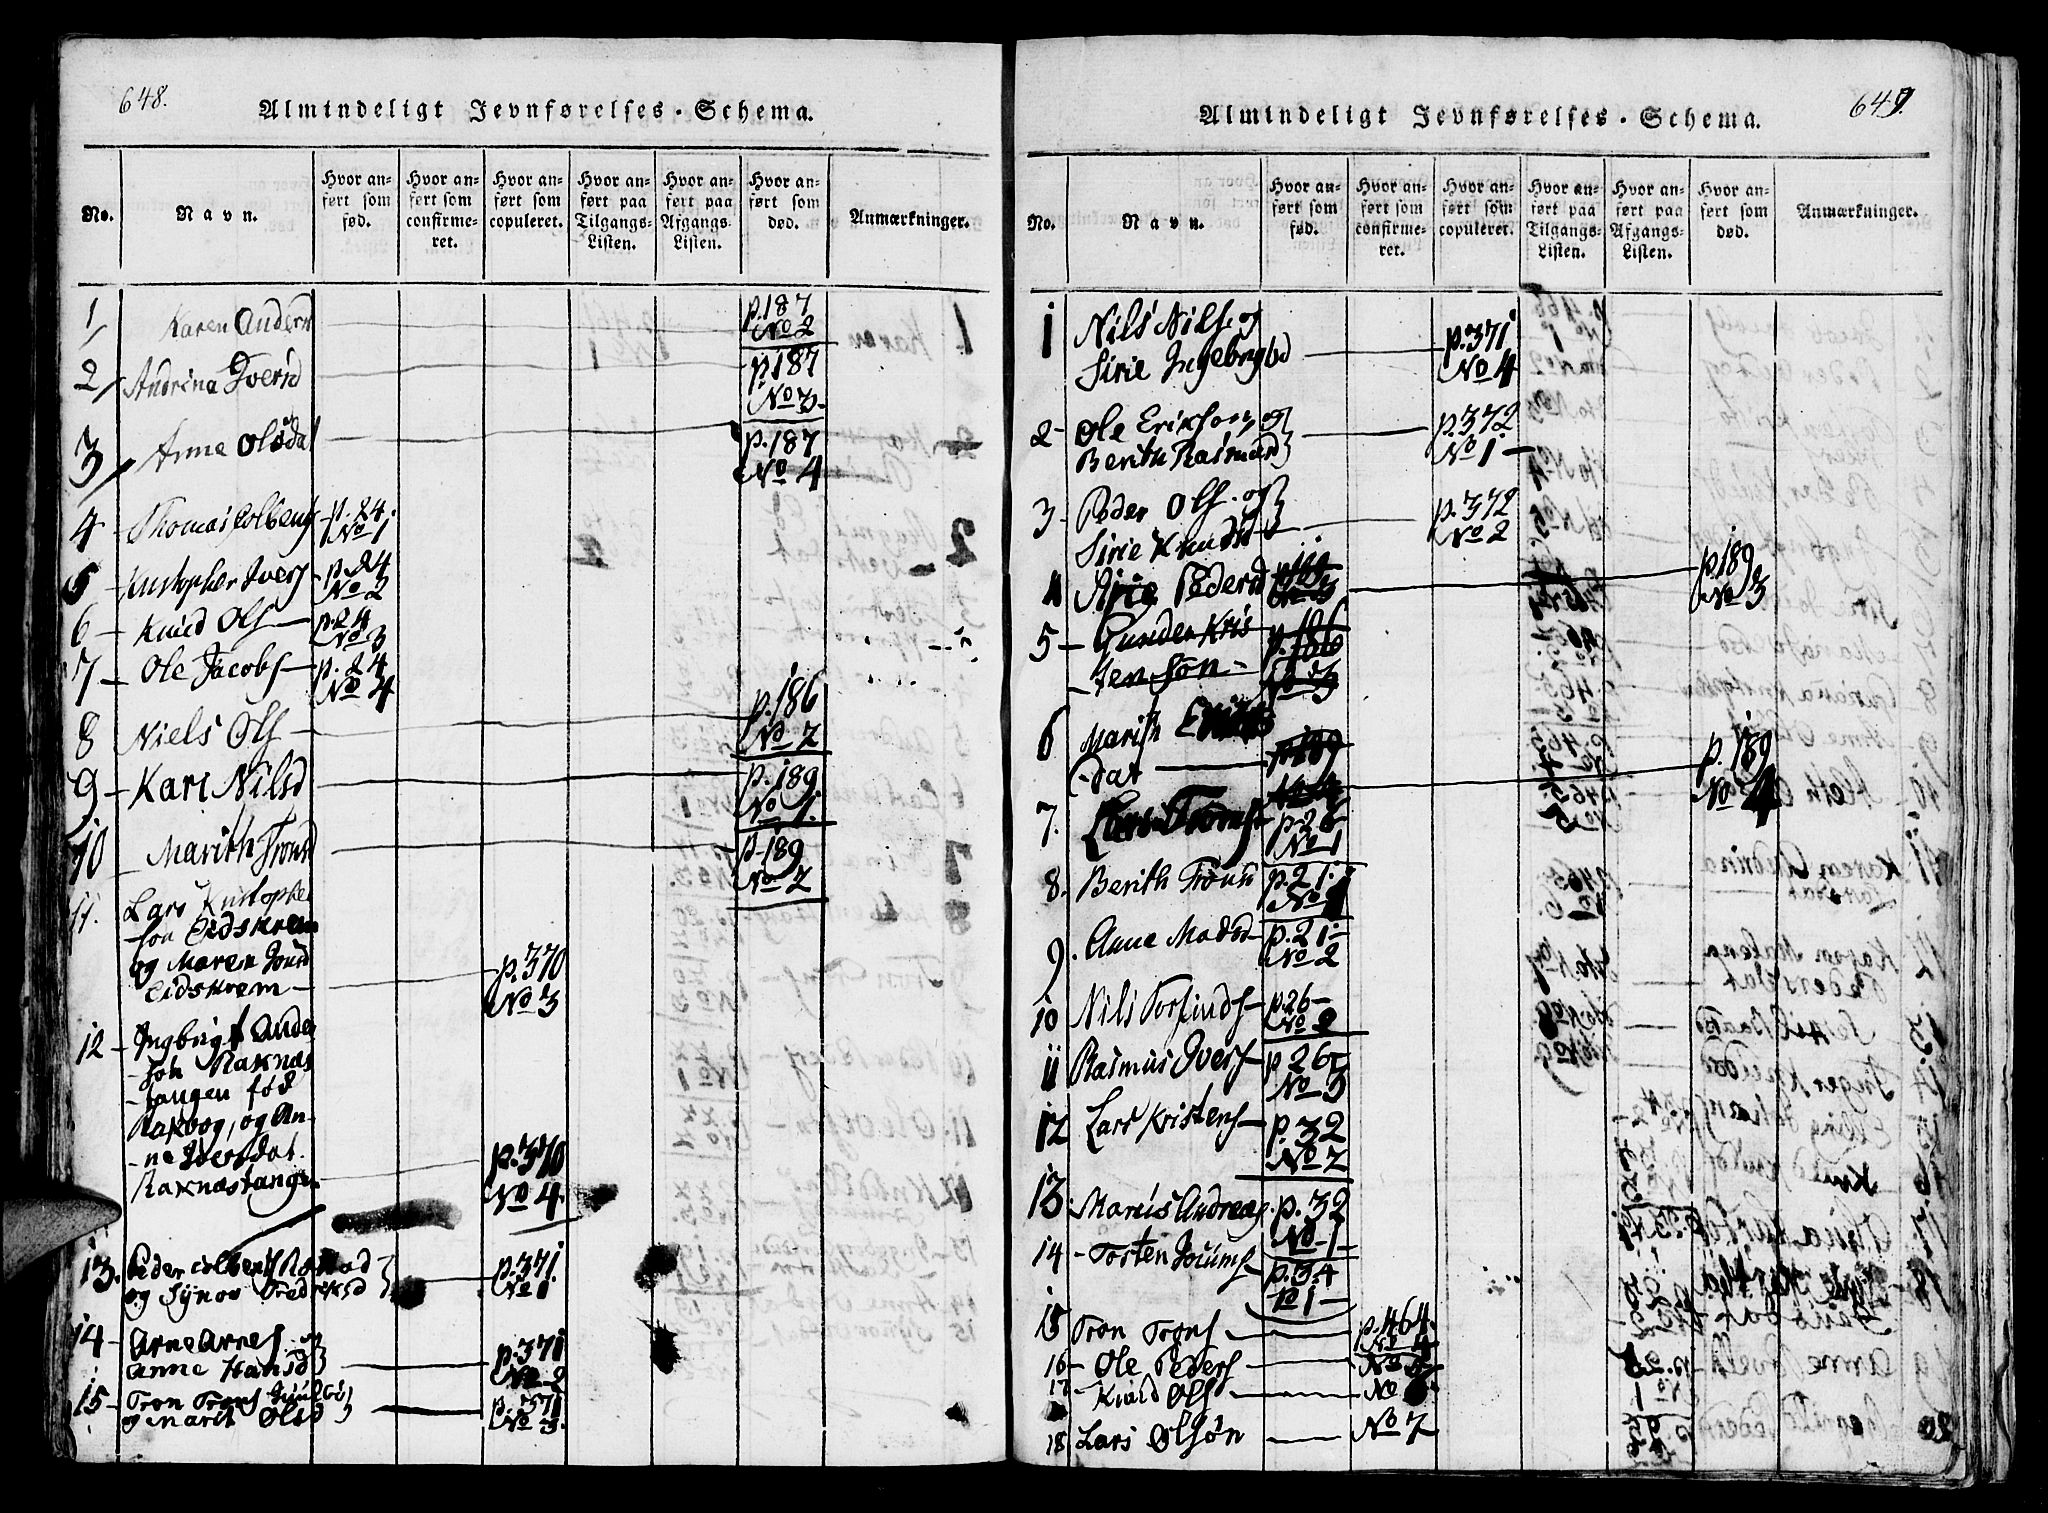 648.
Almindeligt Jevnførelses-Schema.
No. Navn. Hvor anført som fød. Hvor anført som confirmeret. Hvor anført som copuleret. Hvor anført paa Tilgangs-Listen. Hvor anført paa Afgangs-Listen. Hvor anført som død. Anmærkninger.
1 Karen Andersd p. 187 No 2
2 Andrina Iversd p 187 No 3
3 Anne Olsdat p. 187 No 4
4 Thomas Colbens p. 24. No 1
5 Kristopher Ivers p. 24 No 2
6 Knud Ols p. 24 No 3
7 Ole Jacobs p. 24 No 4
8 Niels Ols p. 186 No 2
9 Kari Nilsd p. 189 No 1.
10 Marith Tronsd p. 189 No 2
11. Lars Kristophe
son Eidskrem
og Maren Jonsd
Eidskrem p. 370 No 3
12 Ingbrigt Ander
son Raknæs
tangen fød
Rakvog, og An-
ne Iversdat
Raknæstangen p. 370 No 4.
13. Peder Colbens
og Synov Fredriksd p. 371. No 1
14 Arne Arnes.
Anne Hansd p. 371 No 2
15 Tron Trons
og Marit Olsd p. 371 No 3.
649.
Almindeligt Jevnførelses-Schema.
No. Navn. Hvor anført som fød. Hvor anført som confirmeret. Hvor anført som copuleret. Hvor anført paa Tilgangs-Listen. Hvor anført paa Afgangs-Listen. Hvor anført som død. Anmærkninger.
1 Nils Nils. og
Sirie Ingebrigtsd p. 371 No 4
2 Ole Erikson og
Berith Rasmusd p. 372 No 1
3 Peder Ols. og
Sirie Knudsd p. 372 No 2
4 Sirie Pedersd p. 189 No 3
5 Gunder Kris
tenson p. 186 No 3
6 Marith
dat p. 189 No 4
7. Lars Trons p. 25 No 1
8. Berith Trons p. 21. No 1
9. Anne Madsd p. 21 No 2
10 Nils Torfinds p. 26 No 2
11 Rasmus Ivers p. 26 No 3
12 Lars Kristens p. 32 No 2
13. Marius Andreas p. 32 No 1
14 Tosten p. 34 No 1
15 Tron Trons p. 464. No 4
16 Ole Peders No 5
17 Knud Ols No 6
18 Lars Olsøn No 7